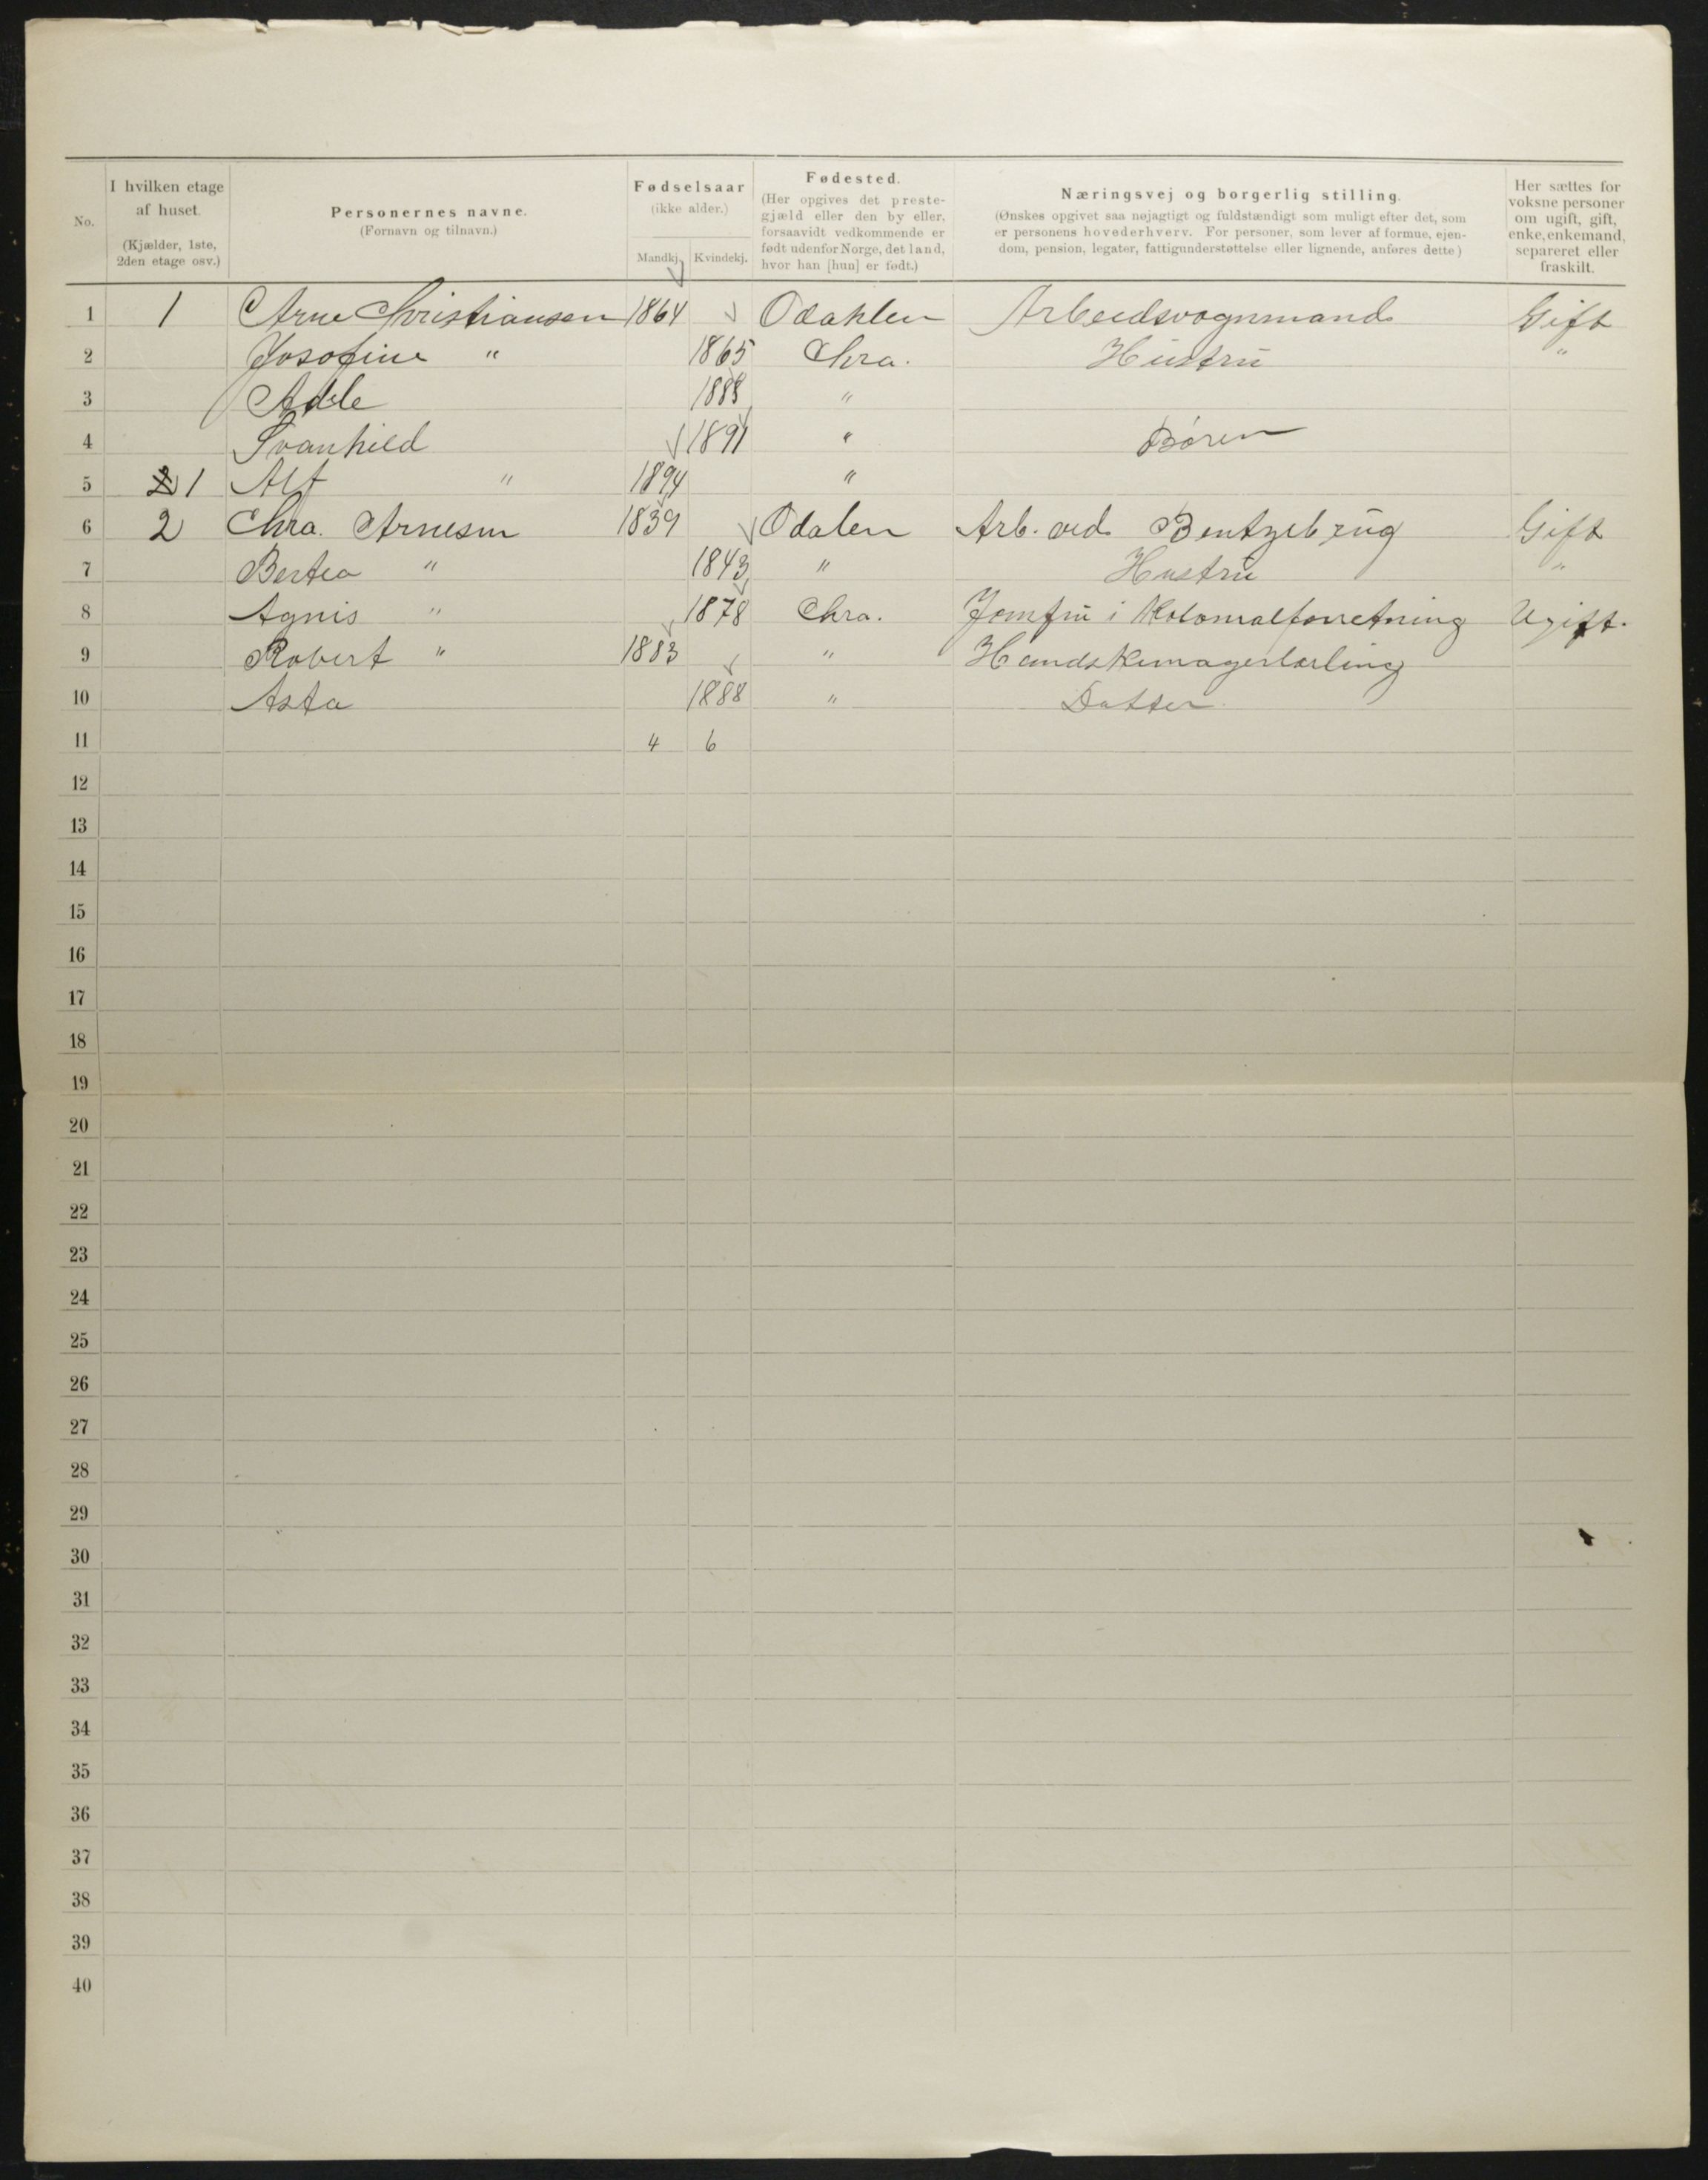 No.
I hvilken etage af huset. (Kjælder, 1ste, 2den etage osv.)
Personernes navne. (Fornavn og tilnavn.)
Fødselsaar (ikke alder.)
Mandkj. Kvindekj.
Fødested. (Her opgives det prestegjæld eller den by eller, forsaavidt vedkommende er født udenfor Norge, det land, hvor han [hun] er født.)
Næringsvej og borgerlig stilling. (Ønskes opgivet saa nøjagtigt og fuldstændigt som muligt efter det, som er personens hovederhverv. For personer, som lever af formue, ejendom, pension, legater, fattigunderstøttelse eller lignende, anføres dette)
Her sættes for voksne personer om ugift, gift, enke, enkemand, separeret eller fraskilt.
1 1 Arne Christiansen 1864 Odahlen Arbeidsvognmand Gift
2 Josofine " 1865 Chra. Hustru "
3 Adele 1888 "
4 Svanhild 1891 " Børen
5 1 Alf " 1894 "
6 2 Chra. Arnesen 1839 Odalen Arb. ved Bentzebrug Gift
7 Bertea " 1843 " Hustru "
8 Agnis " 1878 Chra. Jomfru i Kolonialforretning Ugift.
9 Robert " 1883 " Handskemagerlærling
10 Asta 1888 " Datter
11 4 6
12
13
14
15
16
17
18
19
20
21
22
23
24
25
26
27
28
29
30
31
32
33
34
35
36
37
38
39
40